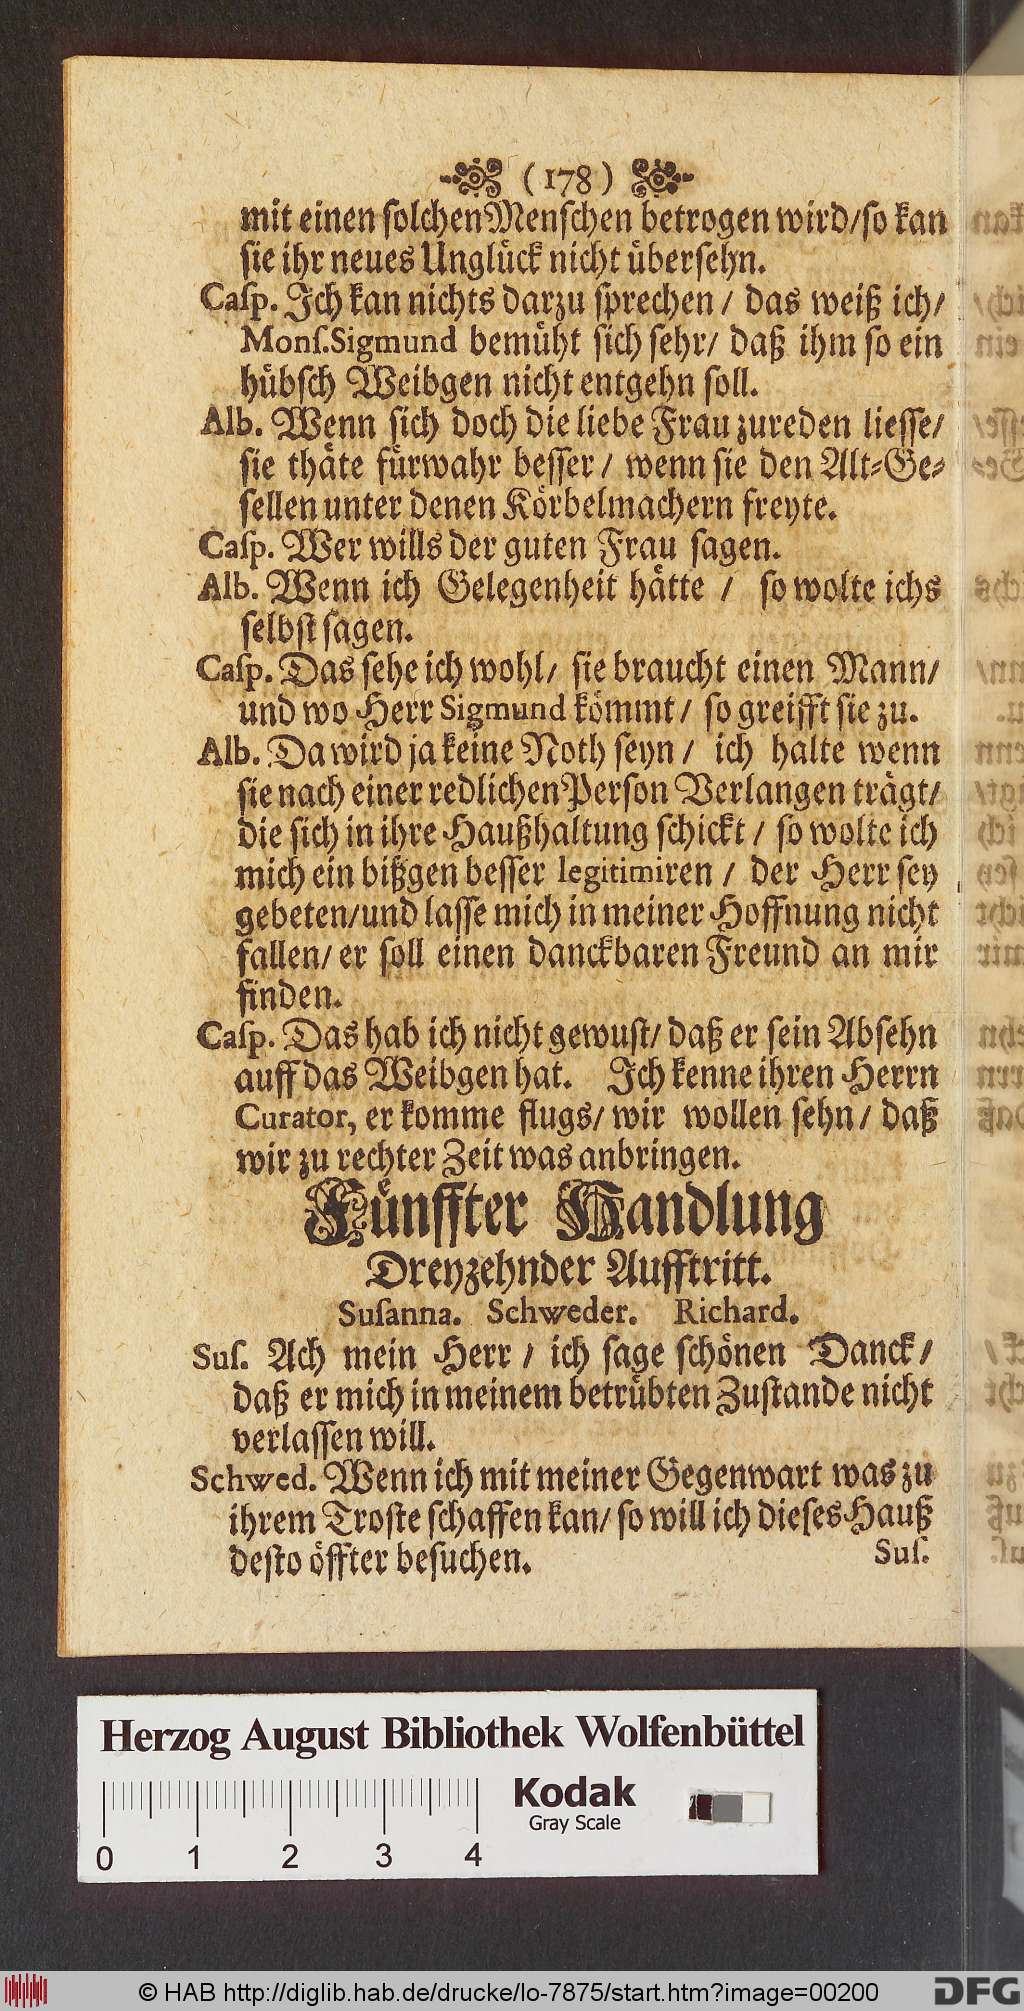 (178)
mit einen solchen Menschen betrogen wird/so kan
sie ihr neues Unglück nicht übersehn.
Casp. Ich kan nichts darzu sprechen / das weiß ich/
Mons. Sigmund bemüht sich sehr/ daß ihm so ein
hübsch Weibgen nicht entgehn soll.
Alb. Wenn sich doch die liebe Frau zureden liesse/
sie thäte fürwahr besser / wenn sie den Alt-Ge-
sellen unter denen Körbelmachern freyte.
Casp. Wer wills der guten Frau sagen.
Alb. Wenn ich Gelegenheit hätte / so wolte ichs
selbst sagen.
Casp. Das sehe ich wohl/ sie braucht einen Mann/
und wo Herr Sigmund kömmt/ so greifft sie zu.
Alb. Da wird ja keine Noth seyn/ ich halte wenn
sie nach einer redlichen Person Verlangen trägt/
die sich in ihre Haußhaltung schickt / so wolte ich
mich ein bißgen besser legitimiren / der Herr sey
gebeten/und lasse mich in meiner Hoffnung nicht
fallen/ er soll einen danckbaren Freund an mir
finden.
Casp. Das hab ich nicht gewust/ daß er sein Absehn
auff das Weibgen hat. Ich kenne ihren Herrn
Curator, er komme flugs/ wir wollen sehn/ daß
wir zu rechter Zeit was anbringen.
Fünffter Handlung
Dreyzehnder Aufftritt.
Susanna. Schweder. Richard.
Sus. Ach mein Herr / ich sage schönen Danck/
daß er mich in meinem betrübten Zustande nicht
verlassen will.
Schwed. Wenn ich mit meiner Gegenwart was zu
ihrem Troste schaffen kan/ so will ich dieses Hauß
desto öffter besuchen.
Sus.
Herzog August Bibliothek Wolfenbüttel
Kodak
Gray Scale
0 1 2 3 4
© HAB http://diglib.hab.de/drucke/lo-7875/start.htm?image=00200
DFG